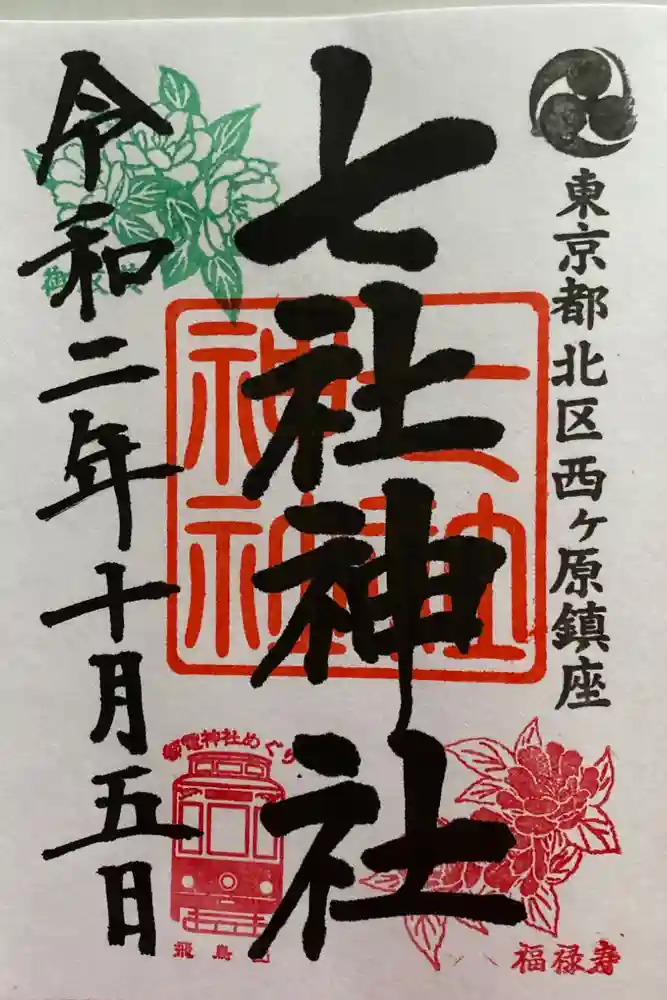 東京都北区西ヶ原鎮座
七社神社
七社神社
令和二年十月五日
都電神社めぐり
飛鳥
福禄寿